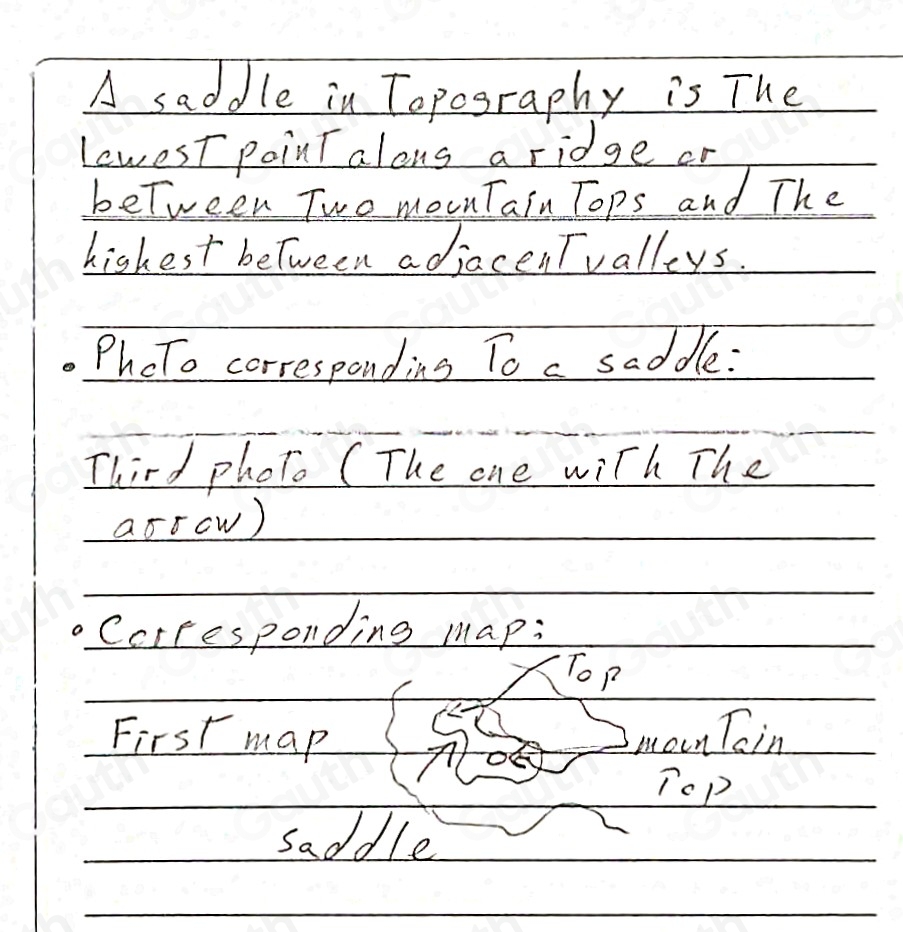 A saddle in Topography is The
lowest point along a ridge or
between Two mountain Tops and The
highest between adjacent valleys.
• Photo corresponding To a saddle:
Third photo (The one with The
arrow)
• Corresponding map:
Top
First map
mountain
Top
saddle
Gauth